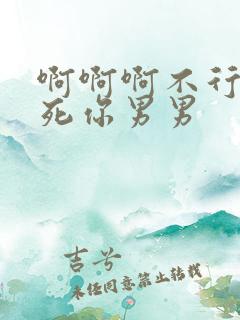 啊啊啊不行
死你男男
吉兮
未经同意禁止转载